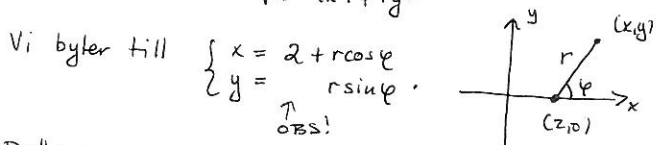 Vi byter till { x = 2 + r cos φ
y = r sin φ .
↑
OBS!
y
(x,y)
r
φ
x
(2,0)